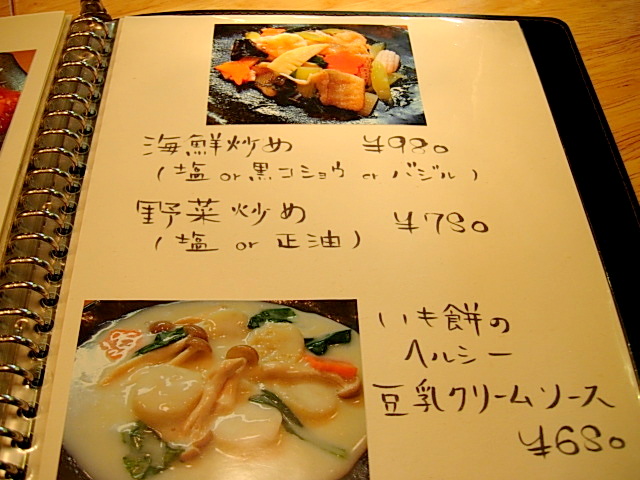 海鮮炒め ¥980
(塩 or 黒コショウ or バジル)
野菜炒め ¥780
(塩 or 正油)
いも餅の
ヘルシー
豆乳クリームソース
¥680